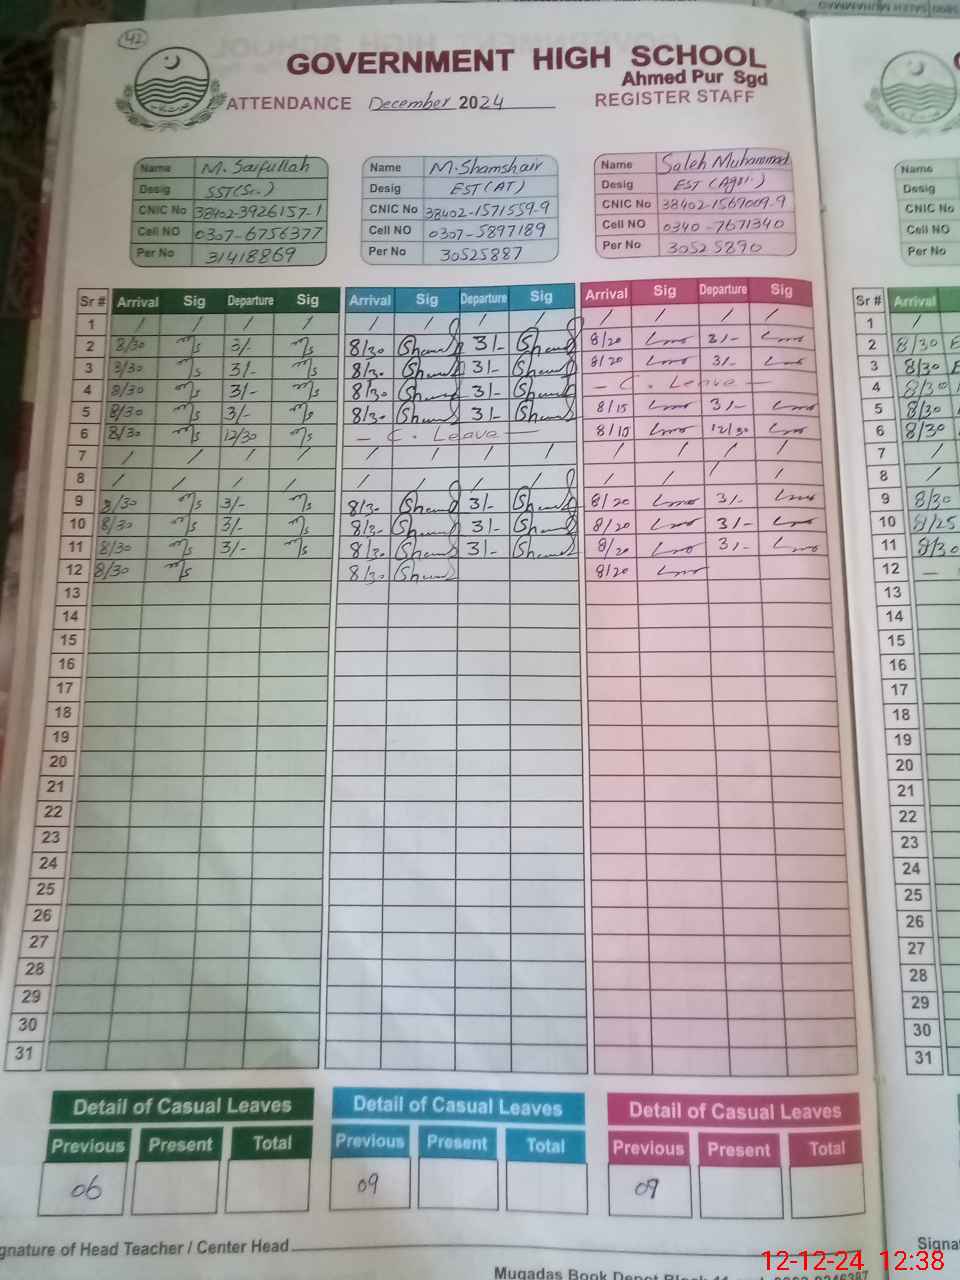 42
GOVERNMENT HIGH SCHOOL
Ahmed Pur Sgd
ATTENDANCE December 2024 REGISTER STAFF
Name M. Saifullah
Desig SST(Sr.)
CNIC No 38402-3926157-1
Cell NO 0307-6756377
Per No 31418869
Name M.Shamshair
Desig EST(AT)
CNIC No 38402-1571559-9
Cell NO 0307-5897189
Per No 30525887
Name Saleh Muhammad
Desig EST (Agri.)
CNIC No 38402-1567009-9
Cell NO 0340-7671340
Per No 30525890
Name
Desig
CNIC No
Cell NO
Per No
Sr # Arrival Sig Departure Sig Arrival Sig Departure Sig Arrival Sig Departure Sig Sr # Arrival
1 / / / / / / / / / / / / 1 /
2 8/30 3/- 8/30 3/- 8/20 3/- 2 8/30
3 8/30 3/- 8/30 3/- 8/20 3/- 3 8/30
4 8/30 3/- 8/30 3/- - C. Leave - 4 8/30
5 8/30 3/- 8/30 3/- 8/15 3/- 5 8/30
6 8/30 12/30 - C. Leave - 8/10 12/30 6 8/30
7 / / / / / / / / / / / / 7 /
8 / / / / / / / / / / / / 8 /
9 8/30 3/- 8/30 3/- 8/20 3/- 9 8/30
10 8/30 3/- 8/30 3/- 8/20 3/- 10 8/25
11 8/30 3/- 8/30 3/- 8/20 3/- 11 8/30
12 8/30 8/30 8/20 12 -
13 13
14 14
15 15
16 16
17 17
18 18
19 19
20 20
21 21
22 22
23 23
24 24
25 25
26 26
27 27
28 28
29 29
30 30
31 31
Detail of Casual Leaves Detail of Casual Leaves Detail of Casual Leaves
Previous Present Total Previous Present Total Previous Present Total
06 09 09
gnature of Head Teacher / Center Head
Signa
12-12-24 12:38
Muqadas Book Depot Block 11